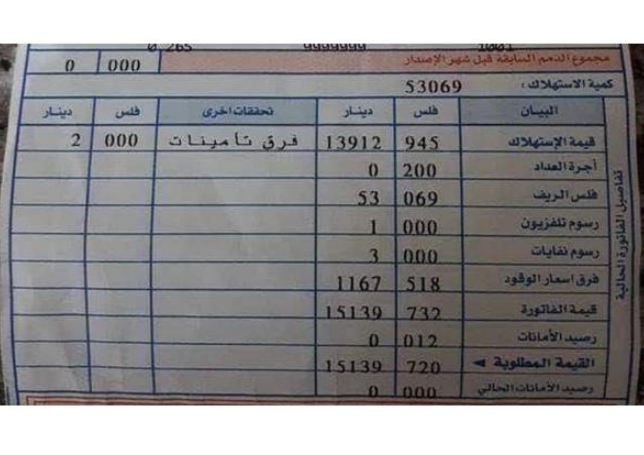 0.265 9999999 1001
مجموع الذمم السابقة قبل شهر الإصدار 000 0
كمية الاستهلاك : 53069
البيـان فلس دينار تحققات اخرى فلس دينار
قيمة الإستهلاك 945 13912 فرق تأمينات 000 2
أجرة العداد 200 0
فلس الريف 069 53
رسوم تلفزيون 000 1
رسوم نفايات 000 3
فرق اسعار الوقود 518 1167
قيمة الفاتورة 732 15139
رصيد الأمانات 012 0
القيمة المطلوبة 720 15139
رصيد الأمانات الحالي 000 0
تفاصيل الفاتورة الحالية